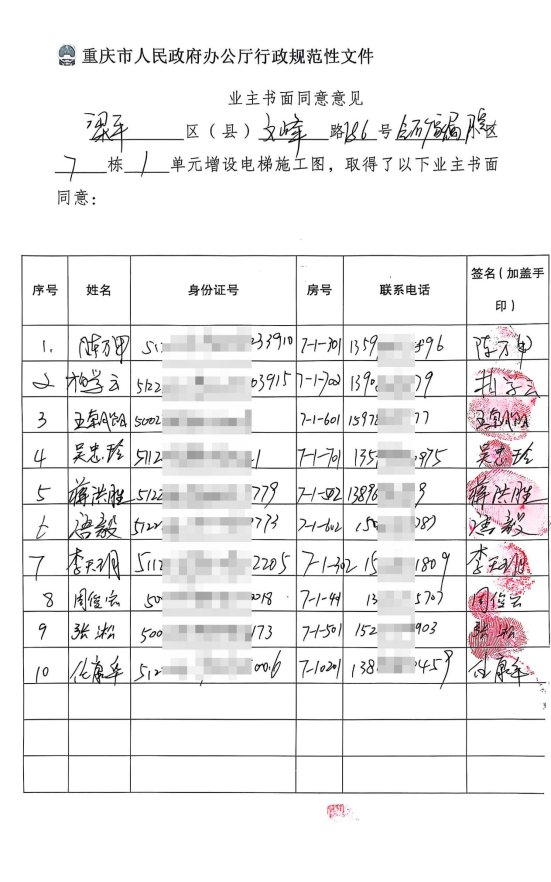 重庆市人民政府办公厅行政规范性文件
业主书面同意意见
梁平 区（县） 文峰 路186号 区
7 栋 1 单元增设电梯施工图，取得了以下业主书面
同意：
序号 姓名 身份证号 房号 联系电话 签名（加盖手印）
1. 陈万甲 51 233910 7-1-301 1359 896 陈万甲
2 柏学云 5122 03915 7-1-702 1390 79 柏学云
3 5002 7-1-601 15978 77
4 吴忠玲 5112 1 7-1-701 135 975 吴忠玲
5 蒋洪胜 5122 779 7-1-502 13896 9 蒋洪胜
6 唐毅 5122 0773 7-1-602 150 287 唐毅
7 李天明 5112 2205 7-1-302 15 1809 李天明
8 周俊宏 500 2018 7-1-4 13 5707 周俊宏
9 张淞 500 173 7-1-501 152 903 张淞
10 任廉华 512 0006 7-1-0201 138 2459 任廉华